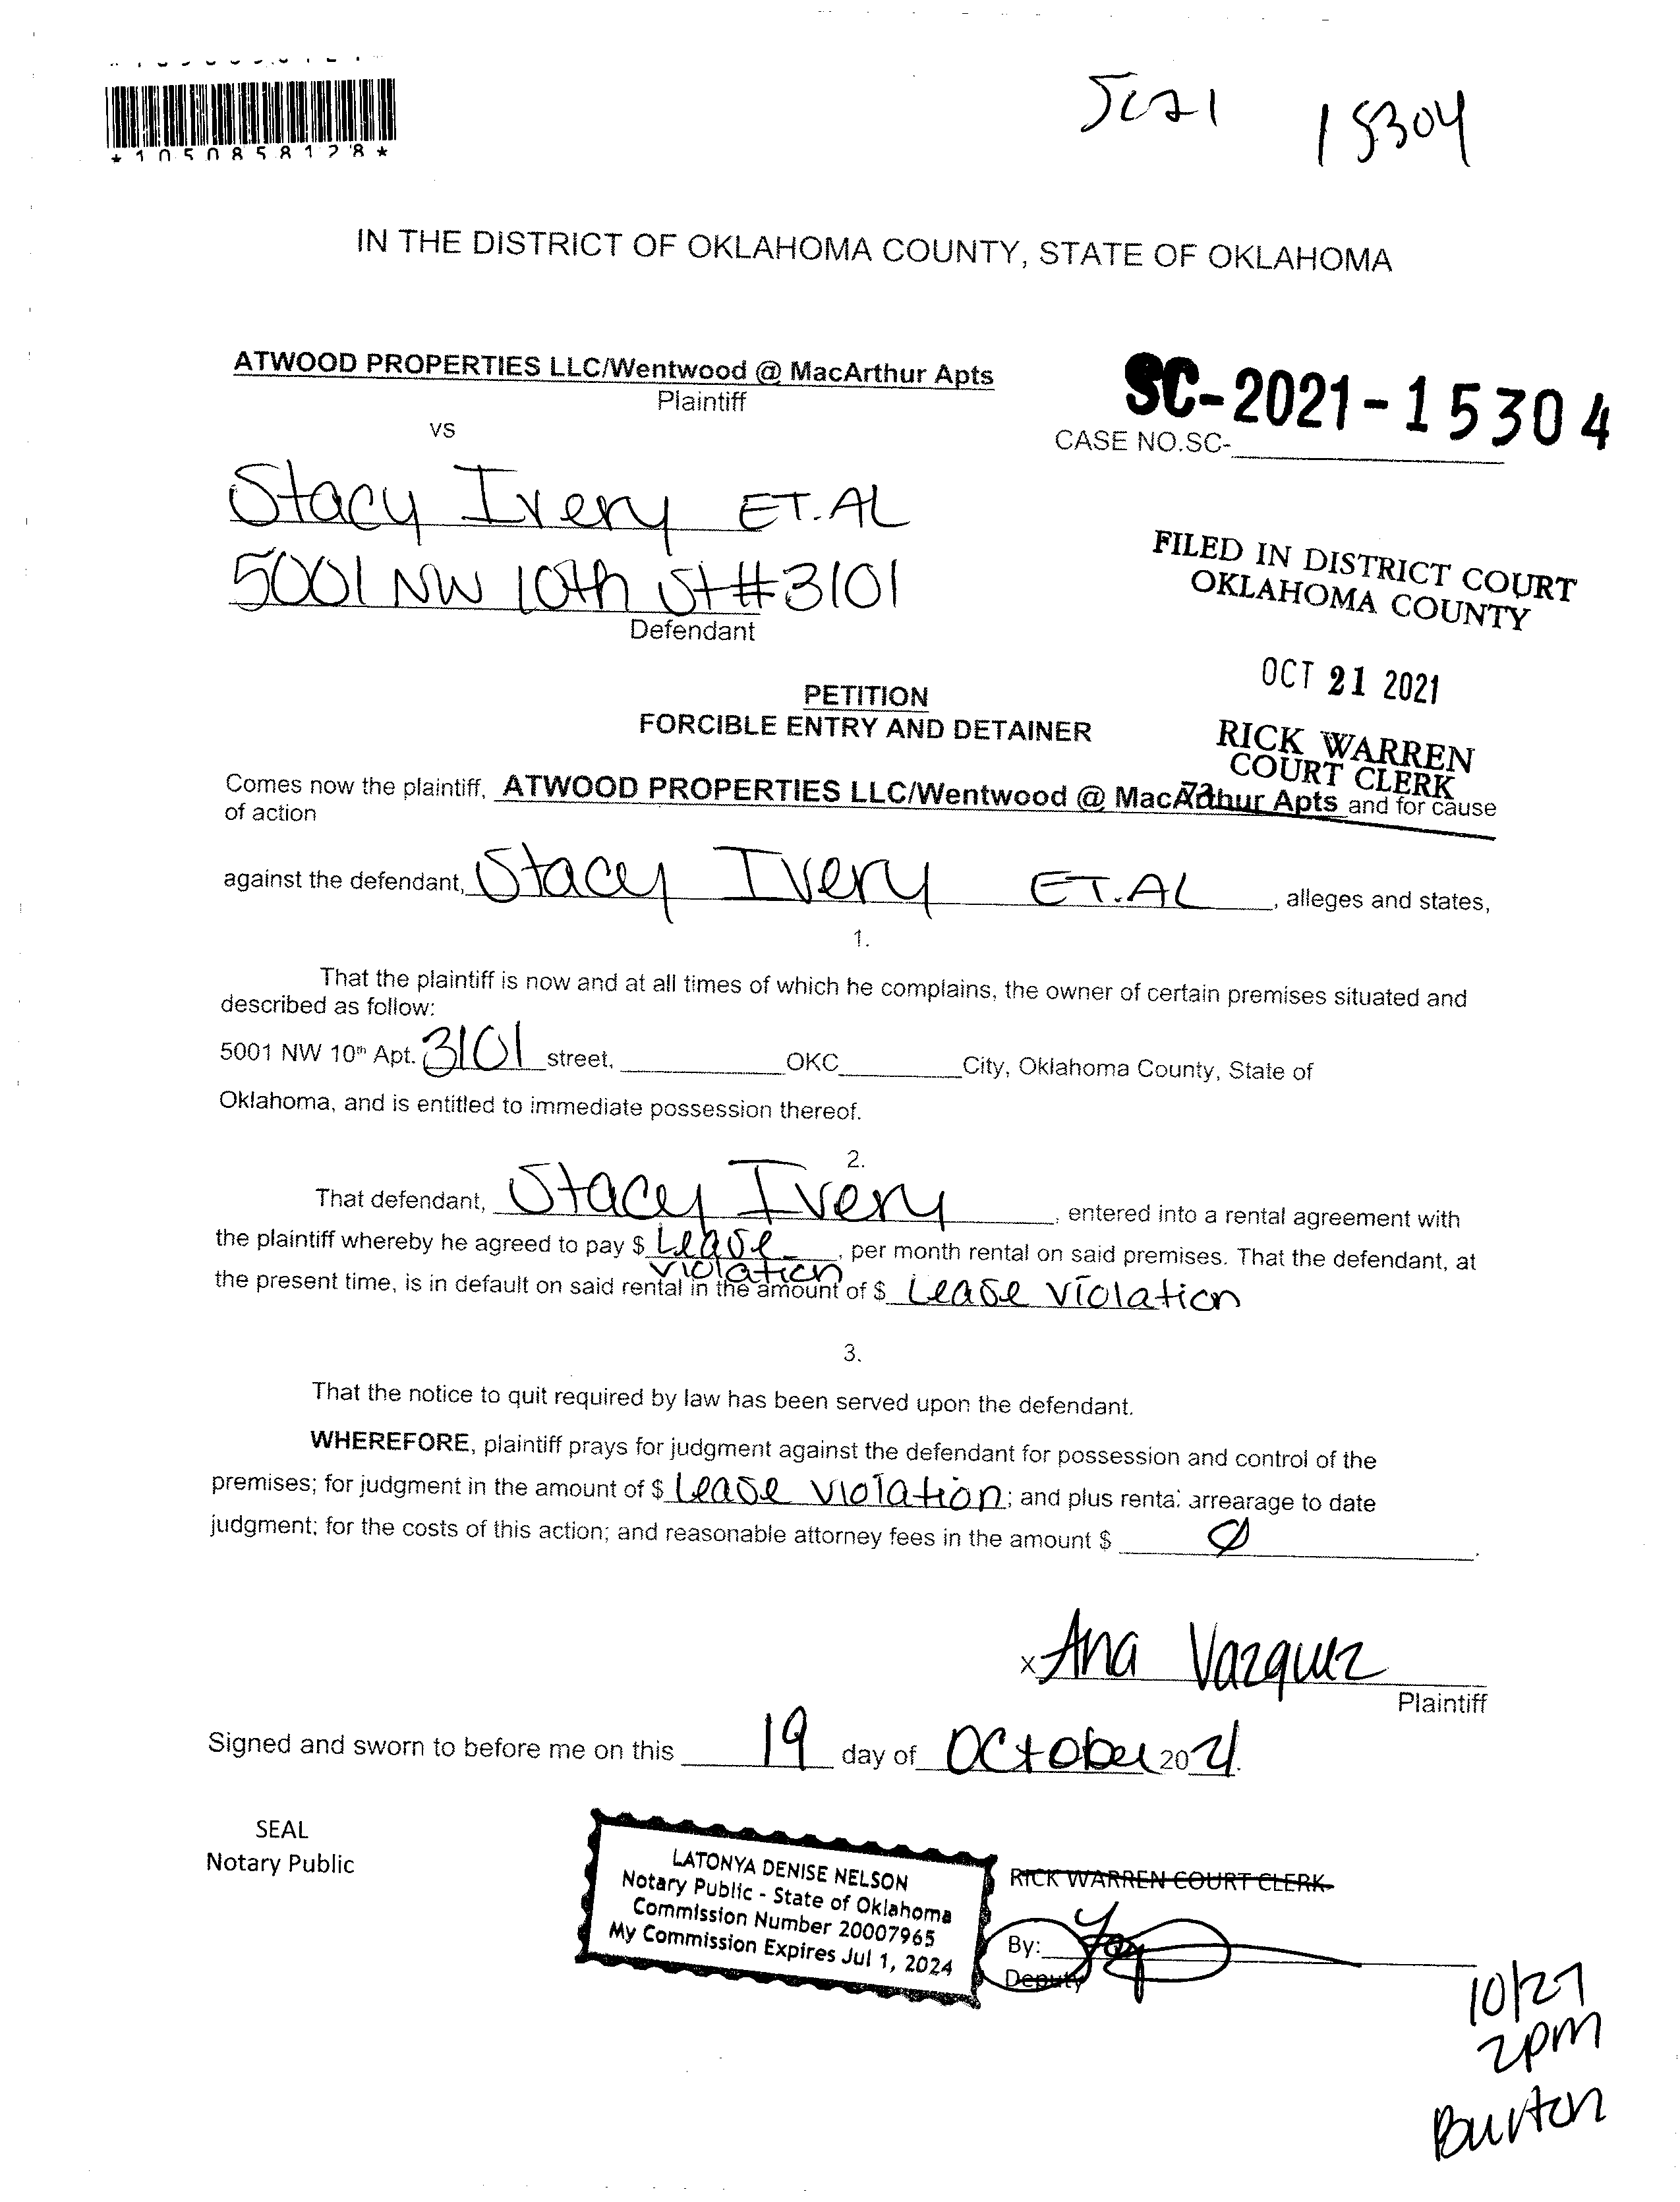 SC21 15304
*1050858128*
IN THE DISTRICT OF OKLAHOMA COUNTY, STATE OF OKLAHOMA
ATWOOD PROPERTIES LLC/Wentwood @ MacArthur Apts
Plaintiff
vs
SC-2021-15304
CASE NO.SC-
Stacy Ivery ET.AL
5001 NW 10th St #3101
Defendant
FILED IN DISTRICT COURT
OKLAHOMA COUNTY
OCT 21 2021
RICK WARREN
COURT CLERK
PETITION
FORCIBLE ENTRY AND DETAINER
Comes now the plaintiff, ATWOOD PROPERTIES LLC/Wentwood @ MacArthur Apts and for cause
of action
against the defendant, Stacy Ivery ET.AL, alleges and states,
1.
That the plaintiff is now and at all times of which he complains, the owner of certain premises situated and
described as follow:
5001 NW 10th Apt. 3101 street, OKC City, Oklahoma County, State of
Oklahoma, and is entitled to immediate possession thereof.
2.
That defendant, Stacy Ivery, entered into a rental agreement with
the plaintiff whereby he agreed to pay $ Lease violation, per month rental on said premises. That the defendant, at
the present time, is in default on said rental in the amount of $ Lease violation
3.
That the notice to quit required by law has been served upon the defendant.
WHEREFORE, plaintiff prays for judgment against the defendant for possession and control of the
premises; for judgment in the amount of $ Lease violation; and plus rental arrearage to date
judgment; for the costs of this action; and reasonable attorney fees in the amount $ Ø.
x Ana Vazquez
Plaintiff
Signed and sworn to before me on this 19 day of October 2021.
SEAL
Notary Public
LATONYA DENISE NELSON
Notary Public - State of Oklahoma
Commission Number 20007965
My Commission Expires Jul 1, 2024
RICK WARREN COURT CLERK
By:
Deputy
10/27
2pm
Burton